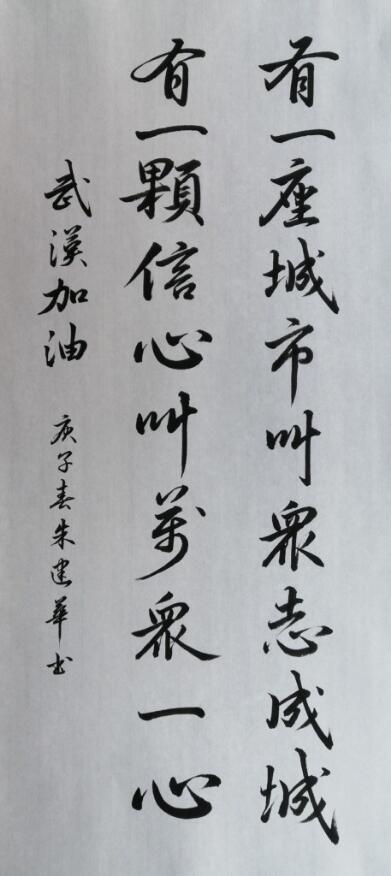 有一座城市叫衆志成城
有一顆信心叫萬衆一心
武漢加油
庚子春朱建華书